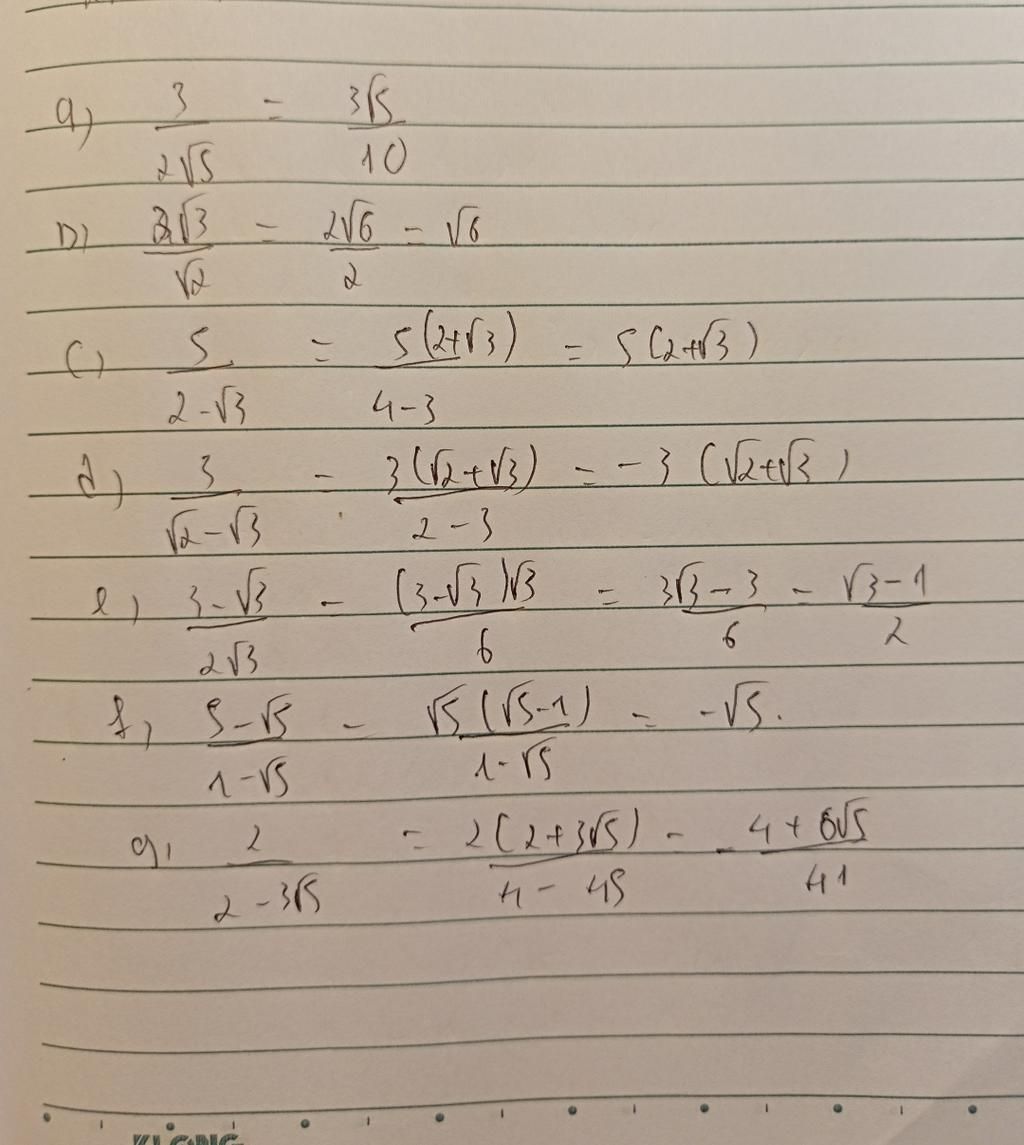 a) 3/(2√5) = 3√5/10
b) 2√3/√2 = 2√6/2 = √6
c) 5/(2-√3) = 5(2+√3)/(4-3) = 5(2+√3)
d) 3/(√2-√3) = 3(√2+√3)/(2-3) = -3(√2+√3)
e) (3-√3)/(2√3) = (3-√3)√3/6 = (3√3-3)/6 = (√3-1)/2
f) (5-√5)/(1-√5) = √5(√5-1)/(1-√5) = -√5.
g) 2/(2-3√5) = 2(2+3√5)/(4-45) = -(4+6√5)/41
KLONG